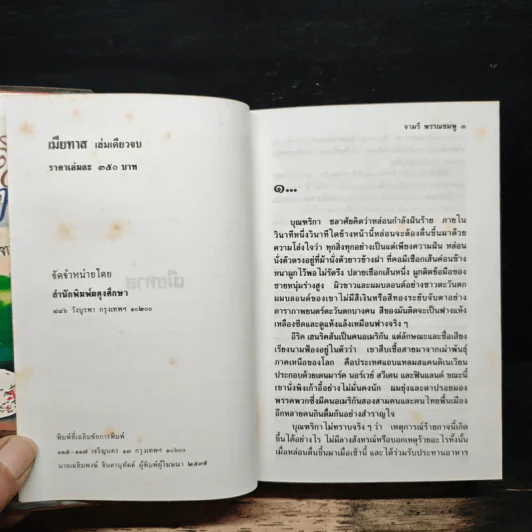 เมียทาส เล่มเดียวจบ
ราคาเล่มละ ๓๕๐ บาท
จัดจำหน่ายโดย
สำนักพิมพ์ผดุงศึกษา
๘๘๖ วังบูรพา กรุงเทพฯ ๑๐๒๐๐
พิมพ์ที่เฉลิมชัยการพิมพ์
๑๑๕-๑๑๗ เจริญนคร ๑๓ กรุงเทพฯ ๑๐๖๐๐
นายเฉลิมพงษ์ จินดานุทัตต์ ผู้พิมพ์ผู้โฆษณา ๒๕๓๕
จามรี พรรณชมพู ๓
๑...
บุณฑริกา ชลาศัยคิดว่าหล่อนกำลังฝันร้าย ภายใน
วินาทีหนึ่งวินาทีใดข้างหน้านี้หล่อนจะต้องตื่นขึ้นมาด้วย
ความโล่งใจว่า ทุกสิ่งทุกอย่างเป็นแต่เพียงความฝัน หล่อน
นั่งตัวตรงอยู่ที่ม้านั่งตัวยาวข้างฝา ที่คอมีเชือกเส้นค่อนข้าง
หนาผูกไว้พอไม่รัดรึง ปลายเชือกเส้นหนึ่ง ผูกติดข้อมือของ
ชายหนุ่มร่างสูง ผิวขาวและผมบลอนด์อย่างชาวตะวันตก
ผมบลอนด์ของเขา ไม่มีสีเงินหรือสีทองระยับจับตาอย่าง
ดาราภาพยนตร์ตะวันตกบางคน สีของมันติดจะเป็นฟางแห้ง
เหลืองซีดและดูแห้งแล้งเหมือนฟางจริง ๆ
อีริค เฮนริคสันเป็นคนอเมริกัน แต่ลักษณะและชื่อเสียง
เรียงนามฟ้องอยู่ในตัวว่า เขาสืบเชื้อสายมาจากเผ่าพันธุ์
ภาคเหนือของโลก คือประเทศแถบแหลมสแคนดิเนเวียน
ประกอบด้วยเดนมาร์ค นอร์เวย์ สวีเดน และฟินแลนด์ ขณะนี้
เขานั่งพิงเก้าอี้อย่างไม่มั่นคงนัก ผมยุ่งและตาปรอยมอง
พรรคพวกซึ่งมีคนอเมริกันสองสามคนและคนไทยพื้นเมือง
อีกหลายคนกินดื่มกันอย่างสำราญใจ
บุณฑริกาไม่ทราบจริง ๆ ว่า เหตุการณ์ร้ายกาจนี้เกิด
ขึ้นได้อย่างไร ไม่มีลางสังหรณ์หรือบอกเหตุร้ายอะไรทั้งนั้น
เมื่อหล่อนตื่นขึ้นมาเมื่อเช้านี้ และได้ร่วมรับประทานอาหาร